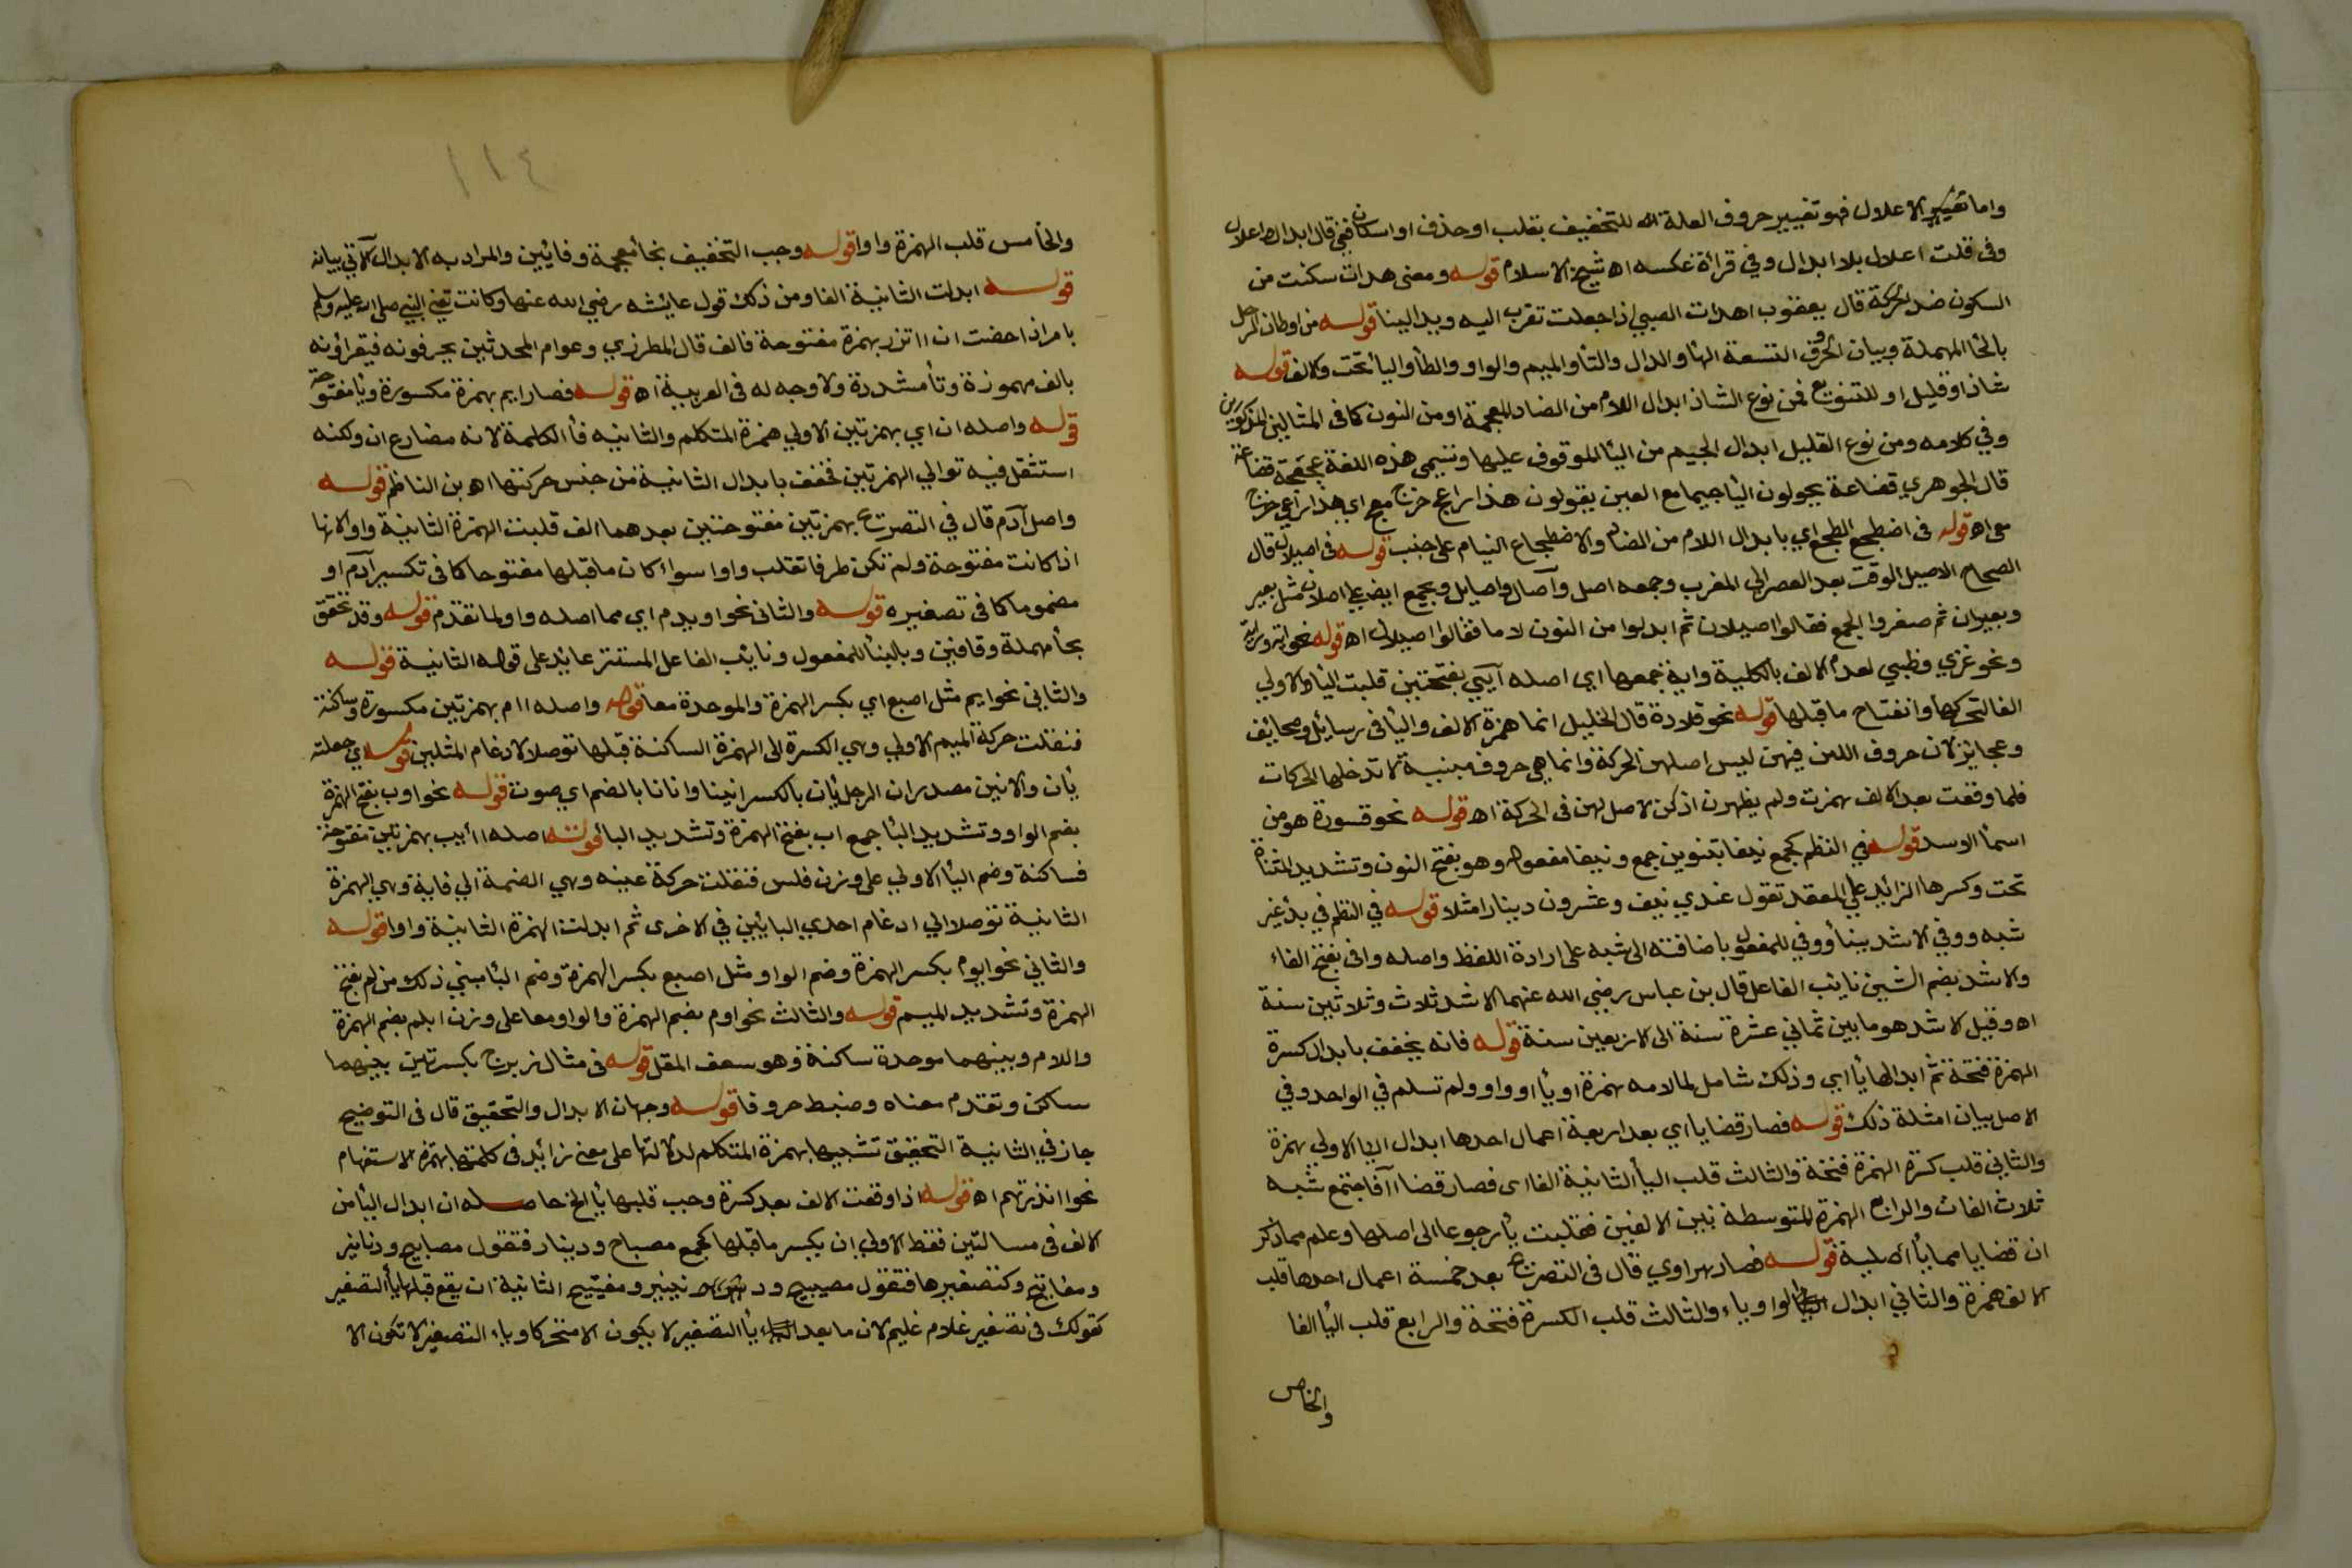 واما تغيير الاعلال فهو تغيير حروف العلة للتخفيف بقلب او حذف او اسكان ففي قال ابدال واعلال
وفي قلت اعلال بلا ابدال وفي قراة عكسه اه شيخ الاسلام قوله ومعنى هدات سكنت من
السكون ضد الحركة قال يعقوب اهدات الصبي اذا جعلت تقرب اليه ويد الينا قوله من اوطان الرحل
بالحا المهملة وبيان الحروف التسعة الها والدال والتا والميم والواو والطا واليا تحت والالف قوله
شاذ او قليل او للتنويع فمن نوع الشاذ ابدال اللام من الضاد المعجمة او من النون كما في المثالين المذكورين
وفي كلامه ومن نوع القليل ابدال الجيم من اليا الموقوف عليها وتسمى هذه اللغة عجعجة قضاعة
قال الجوهري قضاعة يحولون اليا جيما مع العين يقولون هذا راعج خرج معج اي هذا راعي خرج
معي اه قوله في اضطجع الطجع اي بابدال اللام من الضاد والاضطجاع النيام على جنب قوله في اصيلان قال
الصحاح الاصيل الوقت بعد العصر الى المغرب وجمعه اصل وآصال واصايل ويجمع ايضا على اصلان مثل بعير
وبعيران ثم صغروا الجمع فقالوا اصيلان ثم ابدلوا من النون لاما فقالوا اصيلال اه قوله نحو اية وراية
ونحو غزي وظبي لعدم الالف بالكلية واية جمعها اي اصله آيي بفتحتين قلبت اليا الاولى
الفا لتحركها وانفتاح ما قبلها قوله نحو قلادة قال الخليل انما همزة الالف واليا في رسايل وصحائف
وعجايز لان حروف اللين فيهن ليس اصلهن الحركة وانما هي حروف مبنية لا تدخلها الحركات
فلما وقعت بعد الالف همزت ولم يظهرن اذ كن لا اصل لهن في الحركة اه قوله نحو قسورة هو من
اسما الاسد قوله في النظم كجمع نيفا بتنوين جمع ونيفا مفعوله وهو بفتح النون وتشديد المثناة
تحت وكسرها الزايد على العقد تقول عندي نيف وعشرون دينارا مثلا قوله في النظم في بدء غير
شبه ووفي الاشد بينا ووفي للمفعول باضافته الى شبه على ارادة اللفظ واصله وافى بفتح الفاء
والاشد بضم الشين نايب الفاعل قال بن عباس رضي الله عنهما الاشد ثلاث وثلاثين سنة
اه وقيل الاشد هو ما بين ثماني عشرة سنة الى الاربعين سنة قوله فانه يخفف بابدال كسرة
الهمزة فتحة ثم ابدالها يا اي وذلك شامل لما لامه همزة او يا او واو ولم تسلم في الواحد وفي
الاصل بيان امثلة ذلك قوله فصار قضايا اي بعد اربعة اعمال احدها ابدال اليا الاولى همزة
والثاني قلب كسرة الهمزة فتحة والثالث قلب اليا الثانية الفا اي فصار قضاا آفاجتمع شبه
ثلاث الفات والرابع الهمزة المتوسطة بين الالفين فقلبت يا رجوعا الى اصلها وعلم مما ذكر
ان قضايا مما يا اصلية قوله فصار هراوي قال في التصريح بعد خمسة اعمال احدها قلب
الالف همزة والثاني ابدال الواو ياء والثالث قلب الكسرة فتحة والرابع قلب اليا الفا
والخامس
١١٤
والخامس قلب الهمزة واوا قوله وجب التخفيف بخا معجمة وفائين والمراد به الابدال الاتي بيانه
قوله ابدلت الثانية الفا ومن ذلك قول عايشه رضي الله عنها وكانت تعني النبي صلى الله عليه وسلم
يامر اذا حضت ان ااتزر بهمزة مفتوحة فالف قال المطرزي وعوام المحدثين يحرفونه فيقراونه
بالف مهموزة وتا مشددة ولا وجه له في العربية اه قوله فصار ايم بهمزة مكسورة ويا مفتوحة
قوله واصله اان اي بهمزتين الاولى همزة المتكلم والثانيه فا الكلمة لانه مضارع ان ولكنه
استثقل فيه توالي الهمزتين فخفف بابدال الثانية من جنس حركتها اه بن الناظم قوله
واصل آدم قال في التصريح بهمزتين مفتوحتين بعدهما الف قلبت الهمزة الثانية واوا لانها
اذا كانت مفتوحة ولم تكن طرفا تقلب واوا سواء كان ما قبلها مفتوحا كما في تكسير آدم او
مضموما كما في تصغيره قوله والثاني نحو اويدم اي مما اصله واو لما تقدم قوله وقد تحقق
بحا مهملة وقافين وبالبنا للمفعول ونايب الفاعل المستتر عايد على قوله الثانية قوله
والثاني نحو ايم مثل اصبع اي بكسر الهمزة والموحدة معا قوله واصله اامم بهمزتين مكسورة وساكنة
فنقلت حركة الميم الاولى وهي الكسرة الى الهمزة الساكنة قبلها توصلا لادغام المثلين قوله اي جعلته
يان والانين مصدر ان الرجل يان بالكسر انينا وانانا بالضم اي صوت قوله نحو اوب بفتح الهمزة
بضم الواو وتشديد البا جمع اب بفتح الهمزة وتشديد البا قوله اصله اابب بهمزتين مفتوحة
فساكنة وضم البا الاولى على وزن فلس فنقلت حركة عينه وهي الضمة الي فايه وهي الهمزة
الثانية توصلا الى ادغام احدي البائين في الاخرى ثم ابدلت الهمزة الثانية واوا قوله
والثاني نحو ايوم بكسر الهمزة وضم الواو مثل اصبع بكسر الهمزة وضم البا مبني ذلك من ام بفتح
الهمزة وتشديد الميم قوله والثالث نحو اوم بضم الهمزة والواو معا على وزن ابلم بضم الهمزة
واللام وبينهما موحدة ساكنة وهو سعف المقل قوله في مثال زبرج بكسرتين بينهما
ساكن وتقدم معناه وضبط حروفا قوله وجهان الابدال والتحقيق قال في التوضيح
جاز في الثانية التحقيق تشبيها بهمزة المتكلم لدلالتها على معنى زايد في كلمتها بهمزة الاستفهام
نحو اانذرتهم اه قوله اذا وقعت الالف بعد كسرة وجب قلبها يا الخ حاصله ان ابدال اليا من
الالف في مسالتين فقط الاولى ان يكسر ما قبلها كجمع مصباح ودينار فتقول مصابيح ودنانير
ومفاتيح وكتصغيرها فتقول مصيبيح ود نينير ومفيتيح الثانية ان يقع قبلها يا التصغير
كقولك في تصغير غلام غليم لان ما بعد يا التصغير لا يكون الا متحركا وياء التصغير لا تكون الا